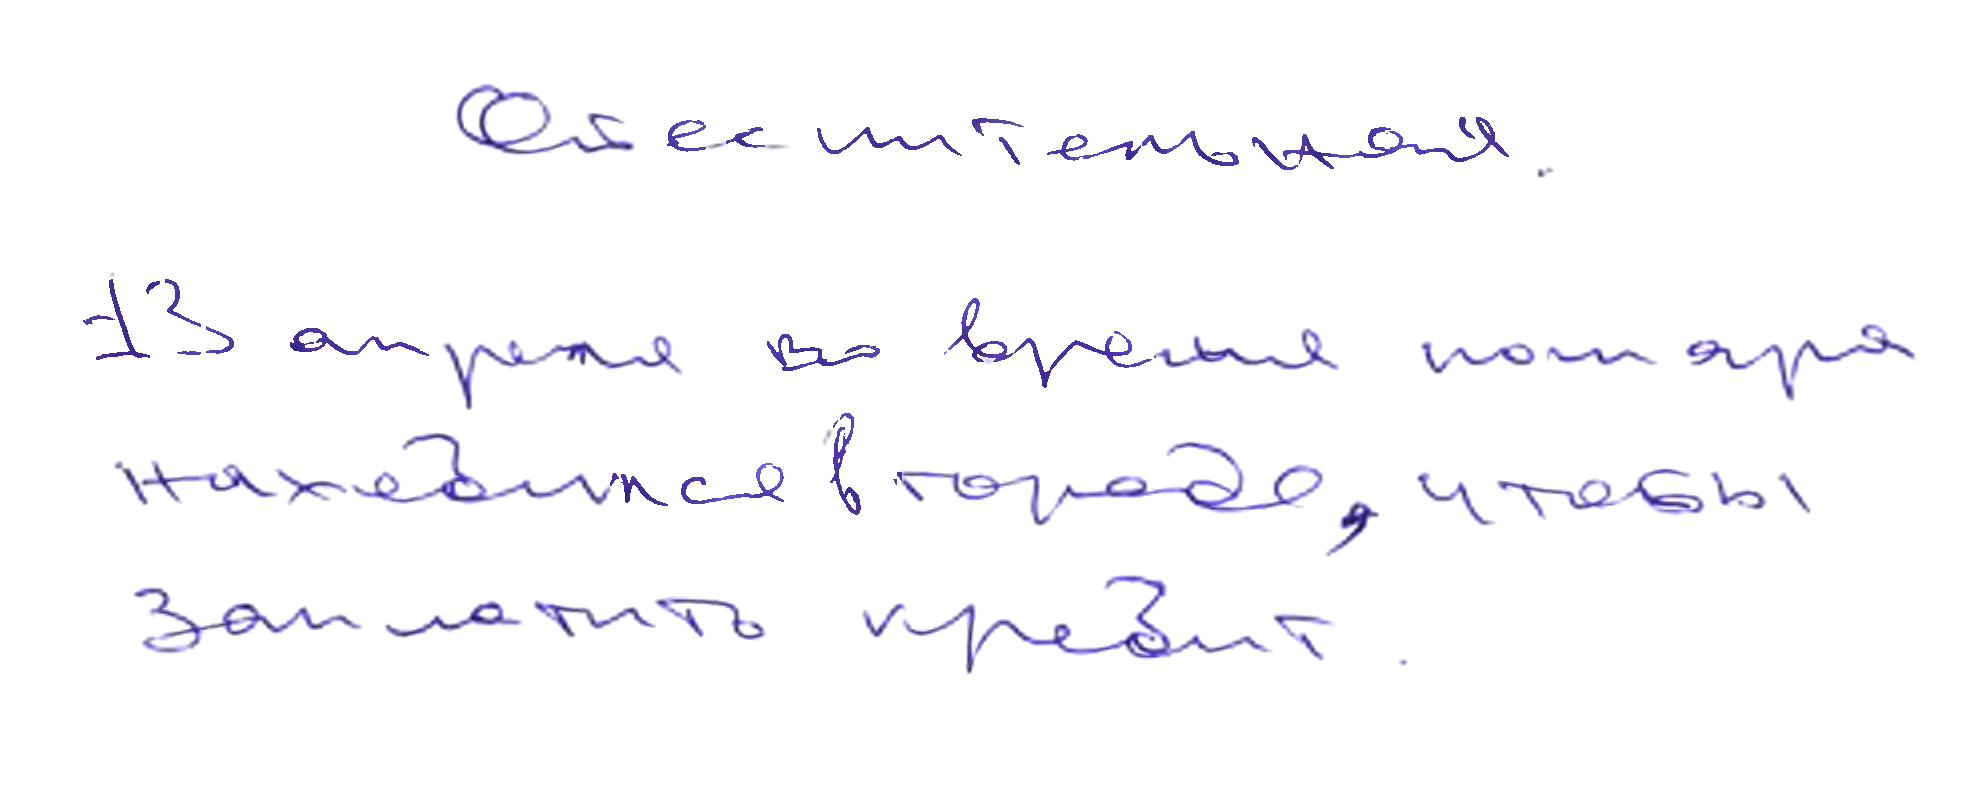 Объяснительная.
13 апреля во время пожара
находился в городе, чтобы
заплатить кредит.